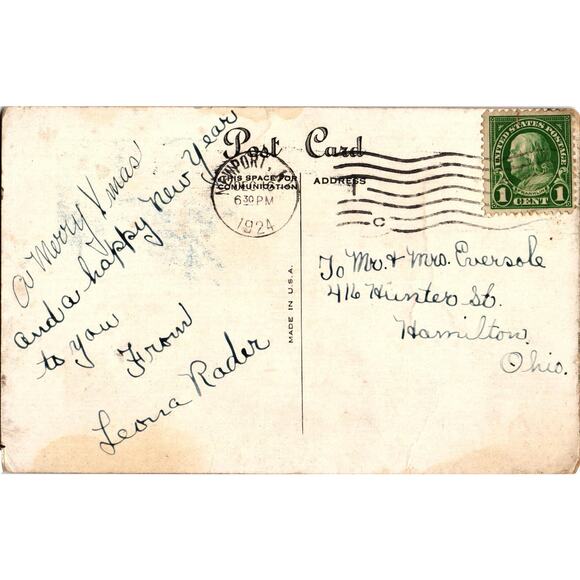 Post Card
THIS SPACE FOR
COMMUNICATION
ADDRESS
NEWPORT,
630 PM
1924
C
UNITED STATES POSTAGE
FRANKLIN
1 1
CENT
A Merry Xmas
and a happy New Year
to you
From
Leona Rader
MADE IN U.S.A.
To Mr. & Mrs. Eversole
416 Hunter St.
Hamilton
Ohio.